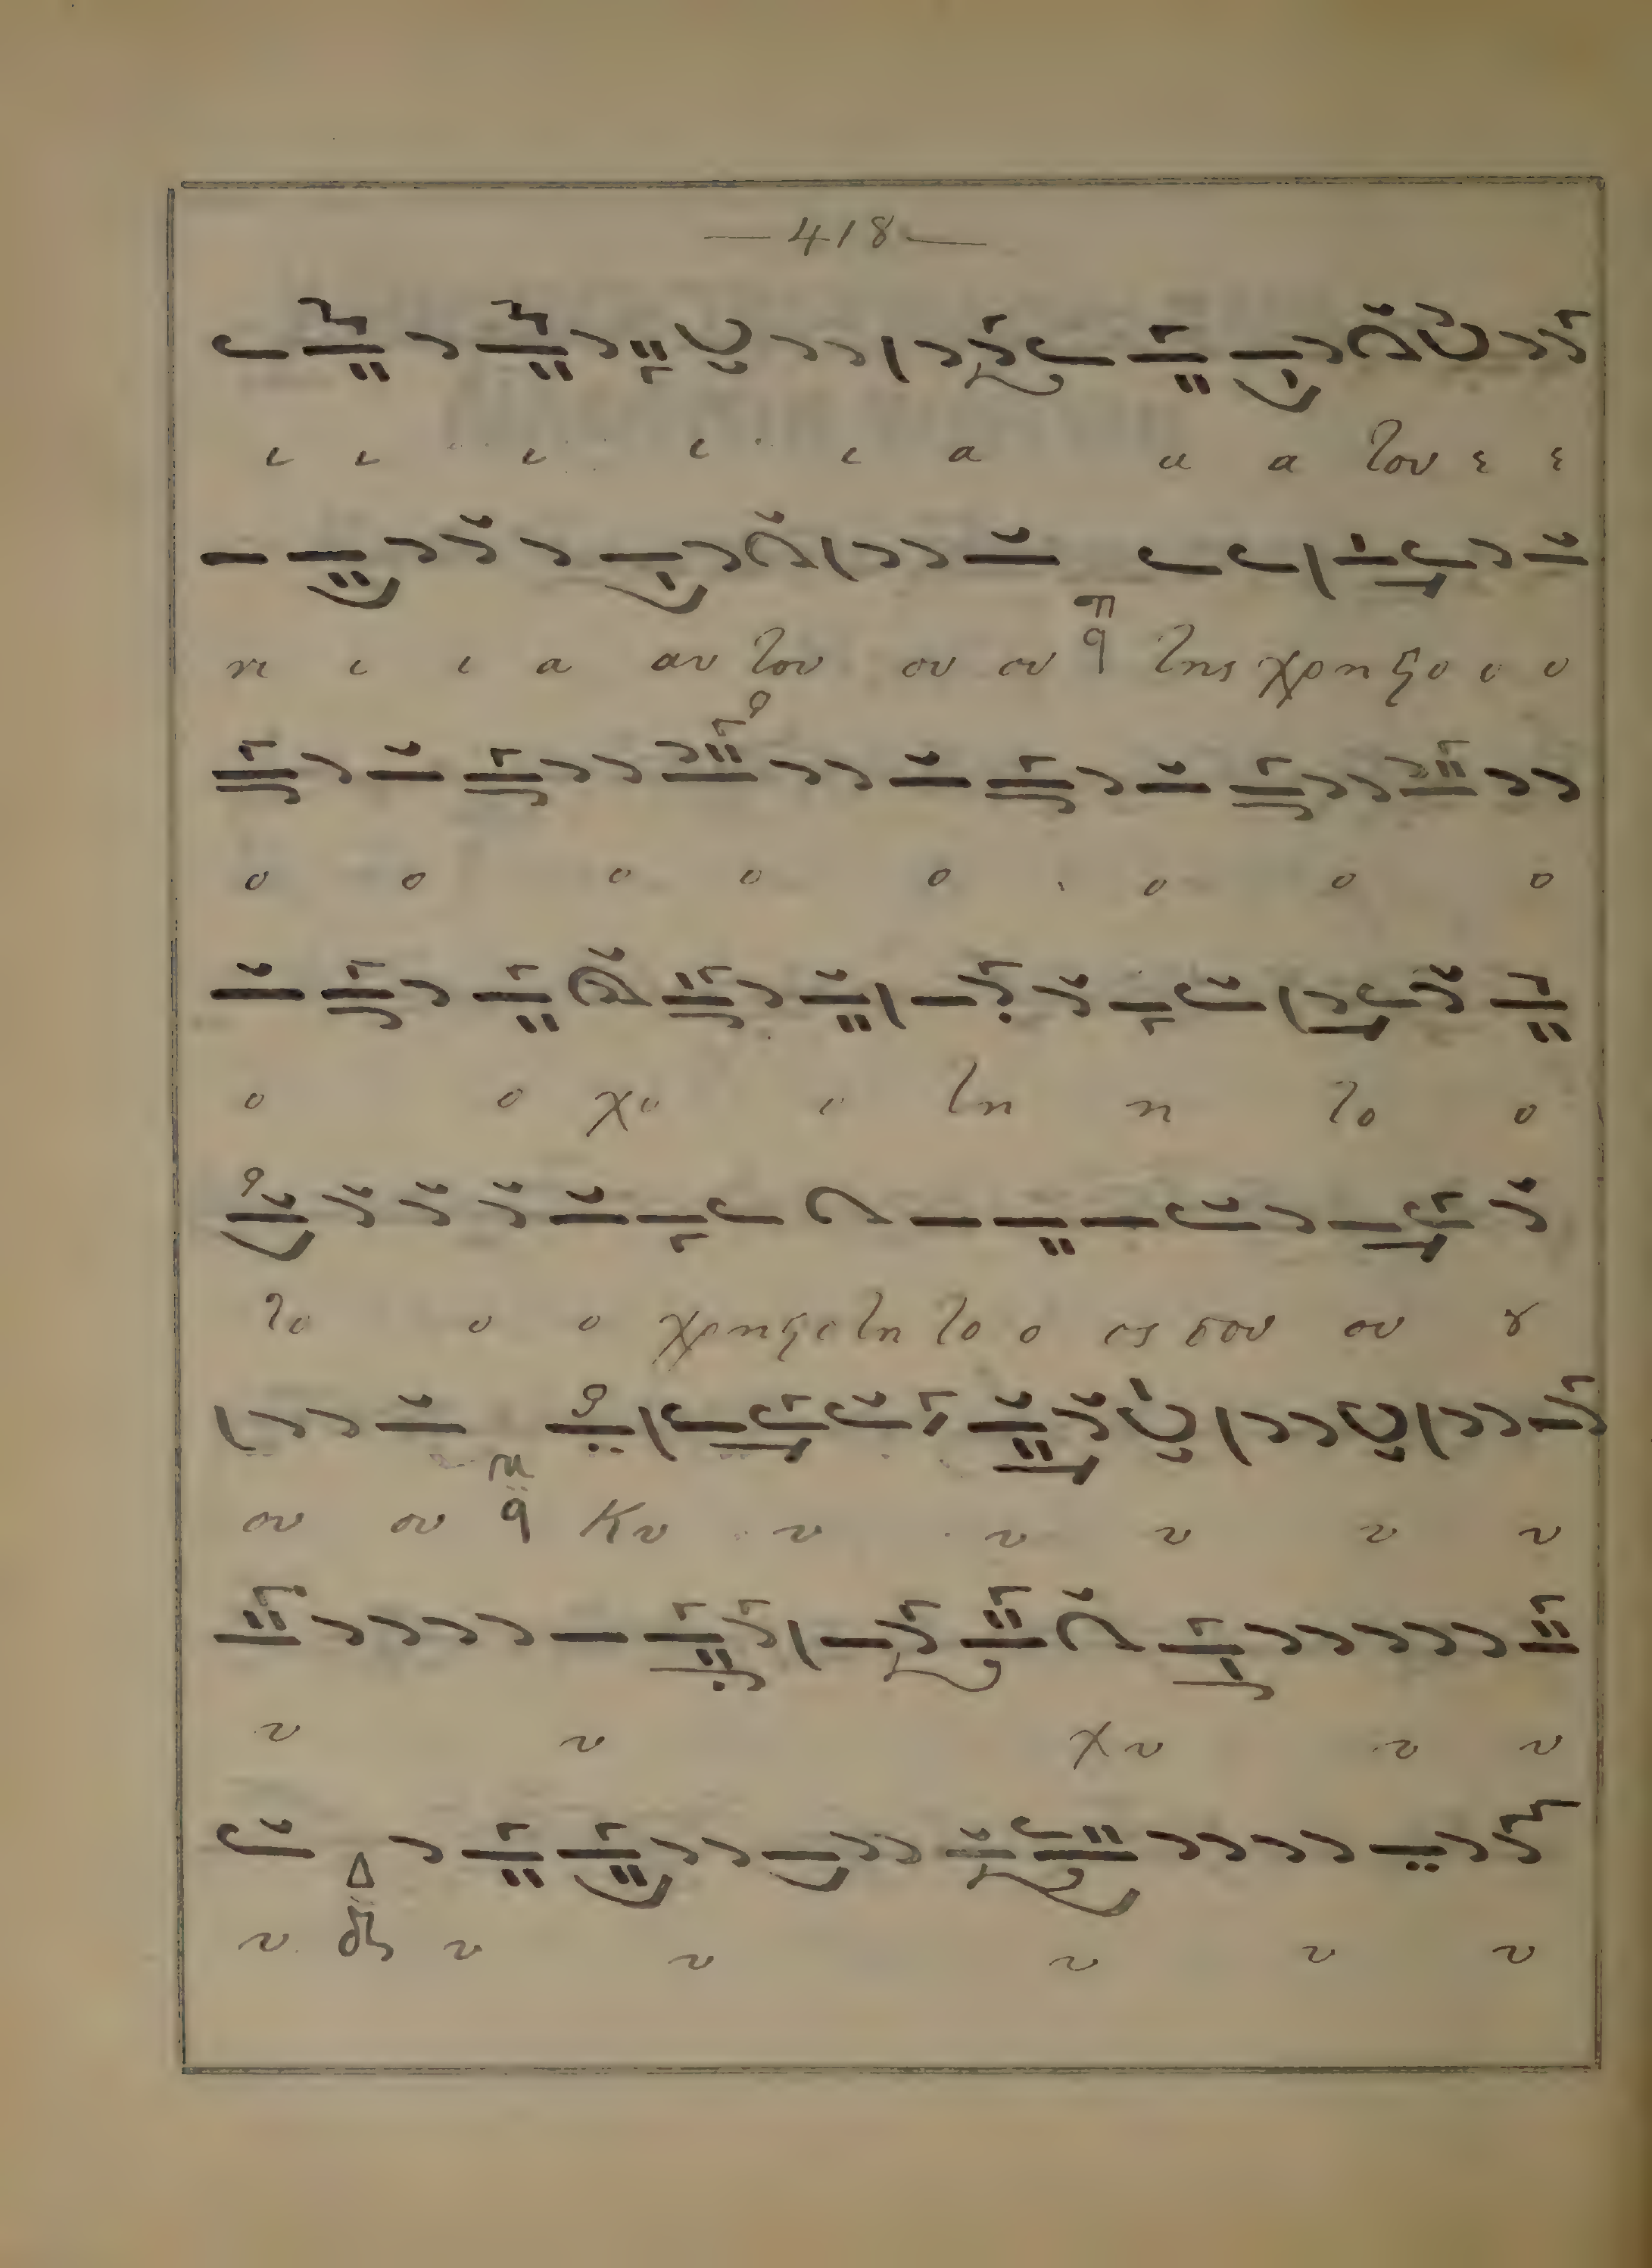 —418—
ι ι ι ι ι α α α του ε ε
νι ι ι α αυ του ου ου της χρηςο ο ο
ο ο ο ο ο ο ο ο
ο ο χο ο τη η το ο
το ο ο χρηςοτη το ο ος σου ου ȣ
ου ου Κυ υ υ υ υ υ
υ υ χυ υ υ
υ Δ υ υ υ υ υ